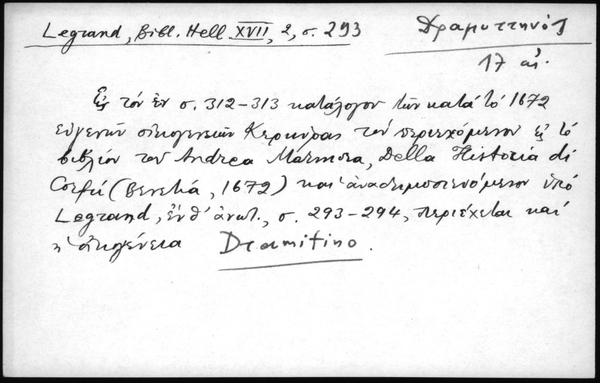 Legrand, Bibl. Hell XVII, 2, σ. 293
Δραμυττηνός
17 αἰ.
Εἰς τόν ἐν σ. 312-313 κατάλογον τῶν κατά τό 1672
εὐγενῶν οἰκογενειῶν Κερκύρας τόν περιεχόμενον εἰς τό
βιβλίον τοῦ Andrea Marmora, Della Historia di
Corfú (Βενετιά, 1672) καί ἀναδημοσιευόμενον ὑπό
Legrand, ἔνθ' ἀνωτ., σ. 293-294, περιέχεται καί
ἡ οἰκογένεια Dramitino.